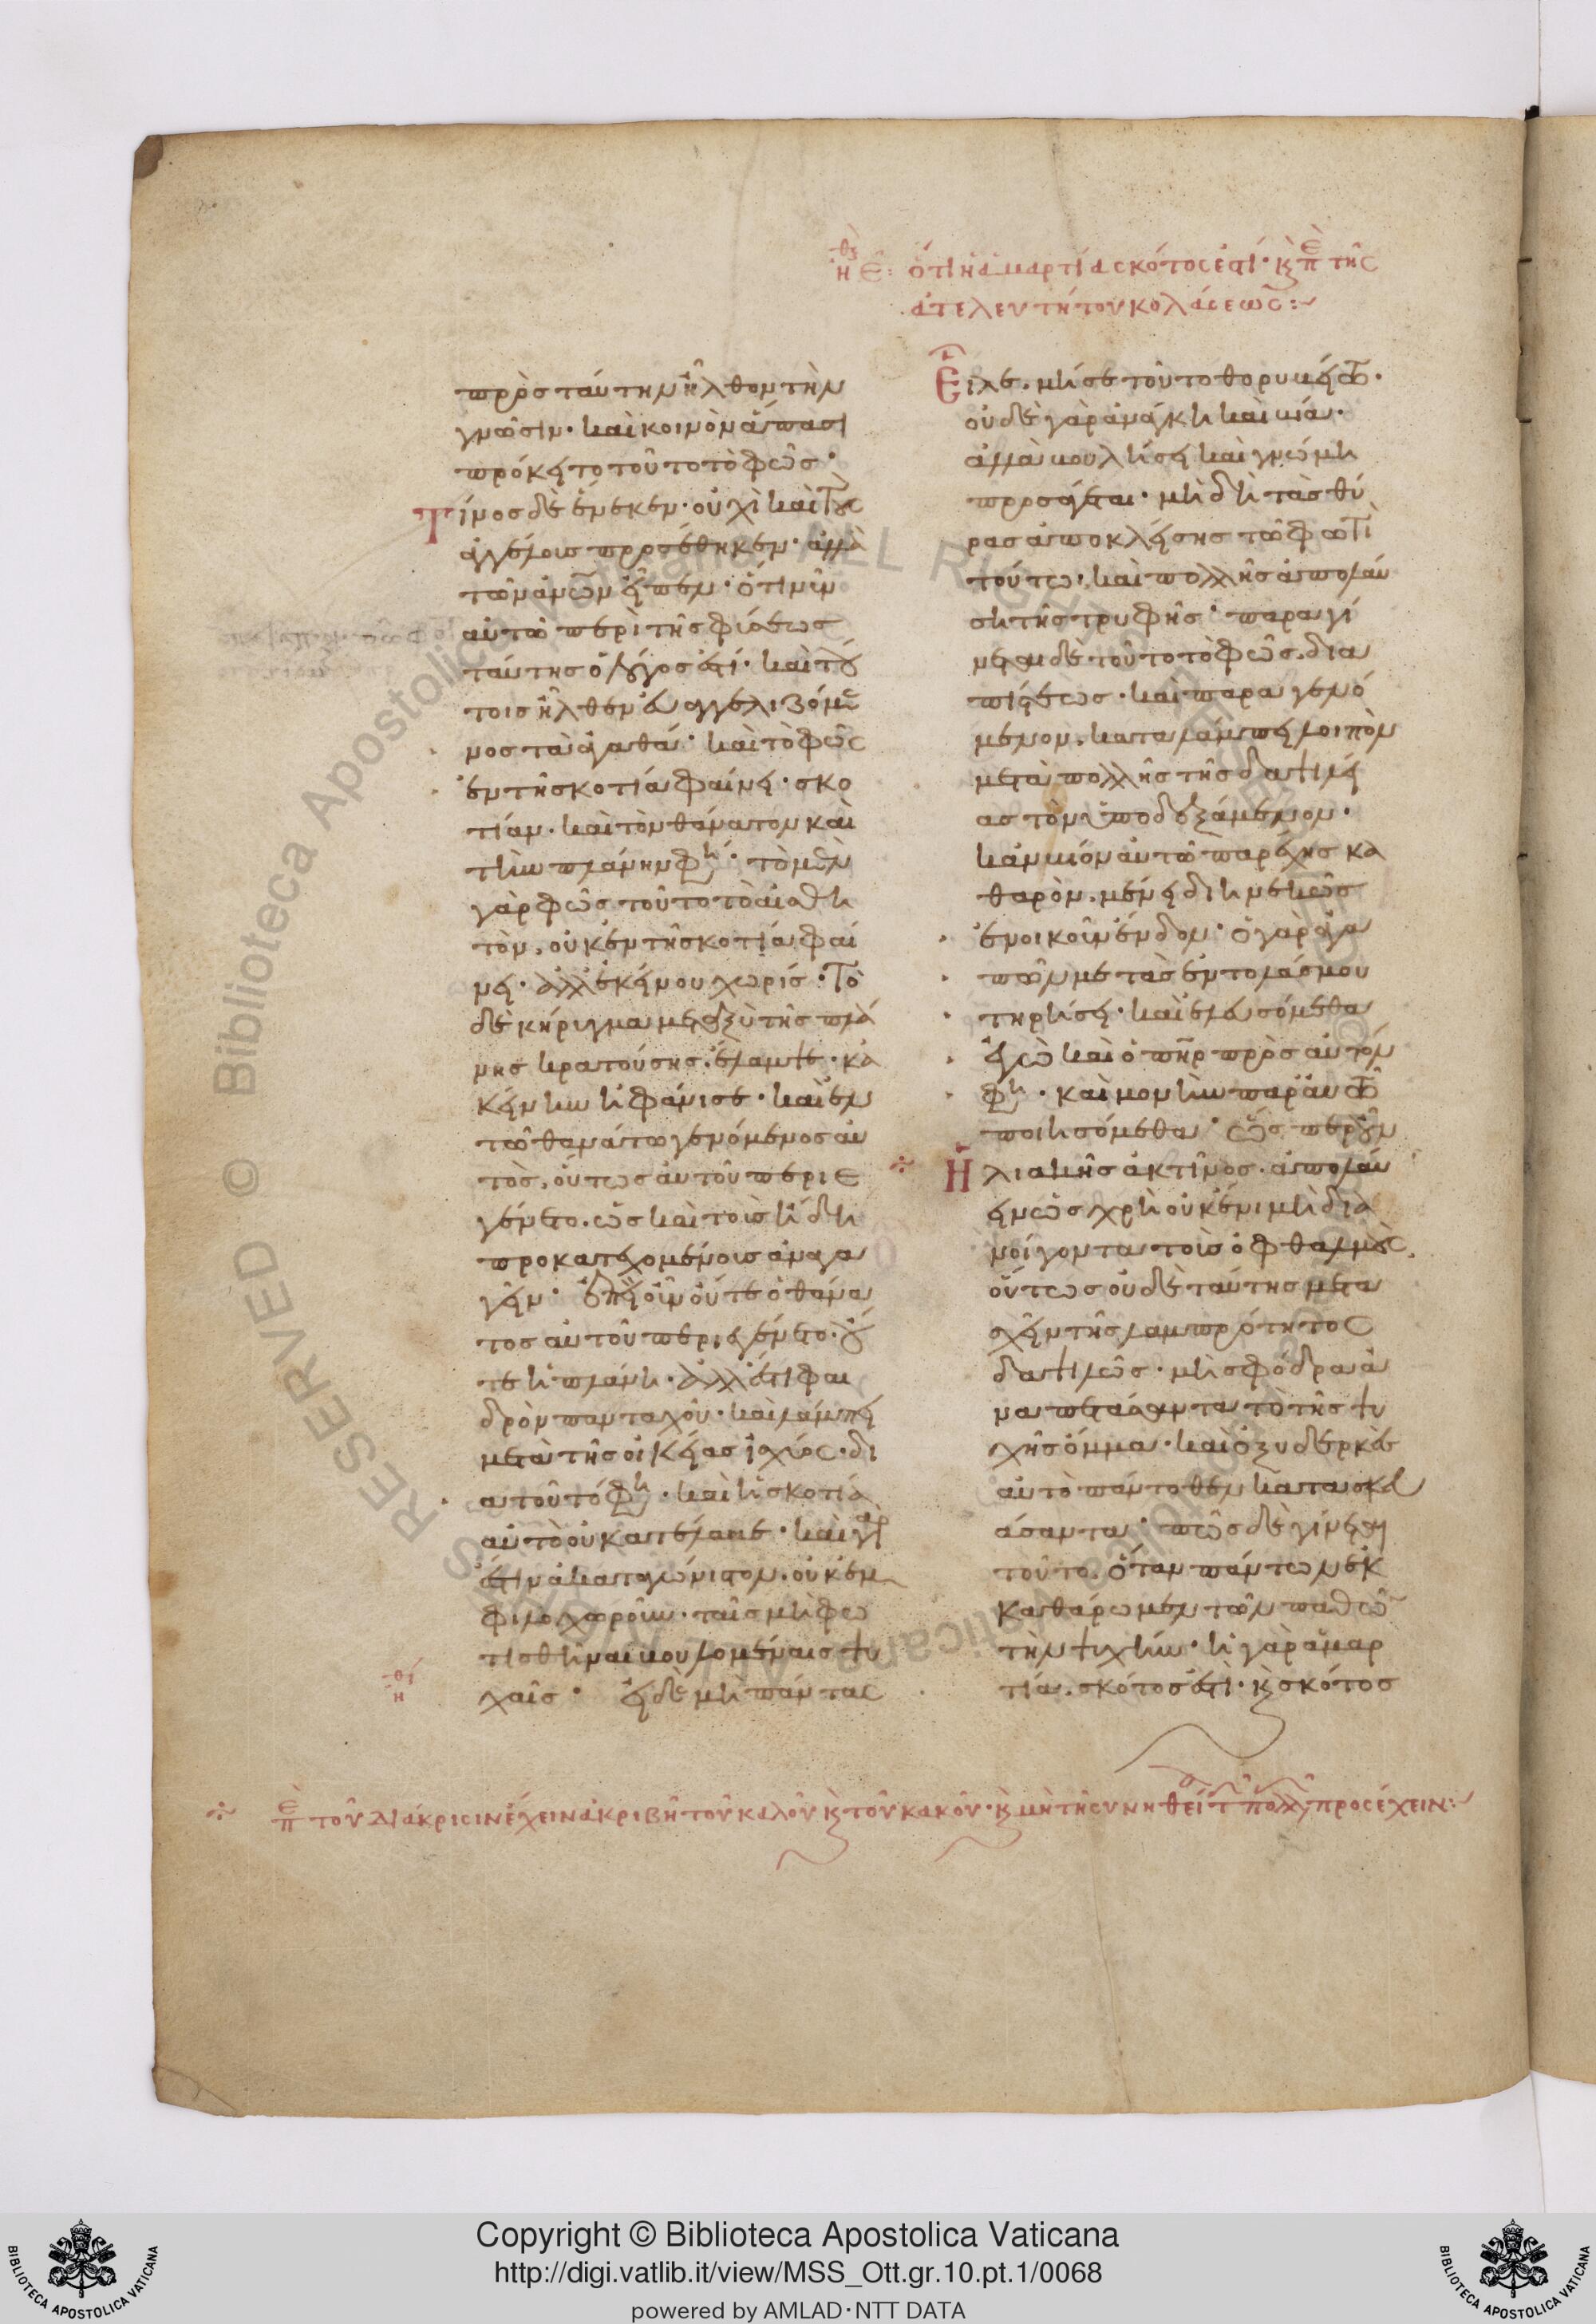 ἠθ Ε: ὅτι ἡ ἁμαρτία σκότος ἐστί· κ πε τῆς
ἀτελευτήτου κολάσεως:~
πρὸς ταύτην ἦλθον τὴν
γνῶσιν· καὶ κοινὸν ἅπασι
πρόκειτο τοῦτο τὸ φῶς·
Τίνος δὲ ἕνεκεν· οὐχὶ καὶ τοὺς
ἀγγέλοις προσέθηκεν· ἀλλὰ
τῶν ἀνων εἶπεν· ὅτι νῦν
αὐτῶ περὶ τῆς φύσεως
ταύτης ὁ λόγος ἐστί· καὶ τού
τοις ἦλθεν εὐαγγελιζόμε
νος τὰ ἀγαθά· καὶ τὸ φῶς
ἐν τῆ σκοτία φαίνει· σκο
τίαν· καὶ τὸν θάνατον καὶ
τὴν πλάνην φη· τὸ μὲν
γὰρ φῶς τοῦτο τὸ αἰσθη
τὸν, οὐκ ἐν τῆ σκοτία φαί
νει· ἀλλ' ἐκείνου χωρίς· τὸ
δὲ κήρυγμα μεταξὺ τῆς πλά
νης κρατούσης, ἔλαμψε· κἀ
κείνην ἠφάνισε· καὶ ἐν
τῶ θανάτω γενόμενος αὐ
τὸς, οὕτως αὐτοῦ περιε
γένετο, ὡς καὶ τοὺς ἤδη
προκατεχομένοις ἀναγα
γεῖν· ἐπεὶ οὖν οὔτε ὁ θάνα
τος αὐτοῦ περιεγένετο· οὔ
τε ἡ πλάνη· ἀλλ' ἔστι φαι
δρὸν πανταχοῦ· καὶ λάμπει
μετὰ τῆς οἰκείας ἰσχύος· δι
α τοῦτό φη· καὶ ἡ σκοτία
αὐτὸ οὐ κατέλαβε· καὶ γὰρ
ἐστιν ἀκαταγώνιστον, οὐκ ἐμ
φιλοχωροῦν· ταῖς μὴ φω
τισθῆναι βουλομέναις ψυ
χαῖς· εἰ δὲ μὴ πάντας
Εἷλε, μή σε τοῦτο θορυβείτω·
οὐδὲ γὰρ ἀνάγκη καὶ βία·
ἀλλὰ βουλήσει καὶ γνώμη
προσάγεται· μὴ δὴ τὰς θύ
ρας ἀποκλείσης τῶ φωτὶ
τούτω· καὶ πολλῆς ἀπολαύ
ση τῆς τρυφῆς· παραγί
νεται δὲ τοῦτο τὸ φῶς, δια
πίστεως· καὶ παραγενό
μενον, καταλάμπει λοιπὸν
μετὰ πολλῆς τῆς δαψιλεί
ας τὸν ὑποδεξάμενον·
κἂν βίον αὐτῶ παρέχης κα
θαρὸν, μένει διηνεκῶς
ἐνοικοῦν ἔνδον· ὁ γὰρ ἀγα
πῶν με τὰς ἐντολάς μου
τηρήσει· καὶ ἐλευσόμεθα
ἐγὼ καὶ ὁ πηρ πρὸς αὐτόν
φη· καὶ μονὴν παρ' αὐτῶ
ποιησόμεθα· ὥσπερ οὖν
Ἡλιακῆς ἀκτῖνος· ἀπολαύ
ειν ὡς χρὴ οὐκ ἔνι μὴ δια
νοίγοντα τοὺς ὀφθαλμοὺς,
οὕτως οὐδὲ ταύτης μετα
σχεῖν τῆς λαμπρότητος
δαψιλῶς· μὴ σφόδρα ἀ
ναπετάσαντα τὸ τῆς ψυ
χῆς ὄμμα· καὶ ὀξυδερκὲς
αὐτὸ πάντοθεν κατασκευ
άσαντα· πῶς δὲ γίνεται
τοῦτο, ὅταν πάντων ἐκ
καθάρωμεν τῶν παθῶν
τὴν ψυχήν· ἡ γὰρ ἁμαρ
τία, σκότος ἐστί· κ σκότος
πε τοῦ διάκρισιν ἔχειν ἀκριβῆ τοῦ καλοῦ κ τοῦ κακοῦ· κ μὴ τῆ συνηθεία τ πολλ προσέχειν:~
Copyright © Biblioteca Apostolica Vaticana
http://digi.vatlib.it/view/MSS_Ott.gr.10.pt.1/0068
powered by AMLAD·NTT DATA